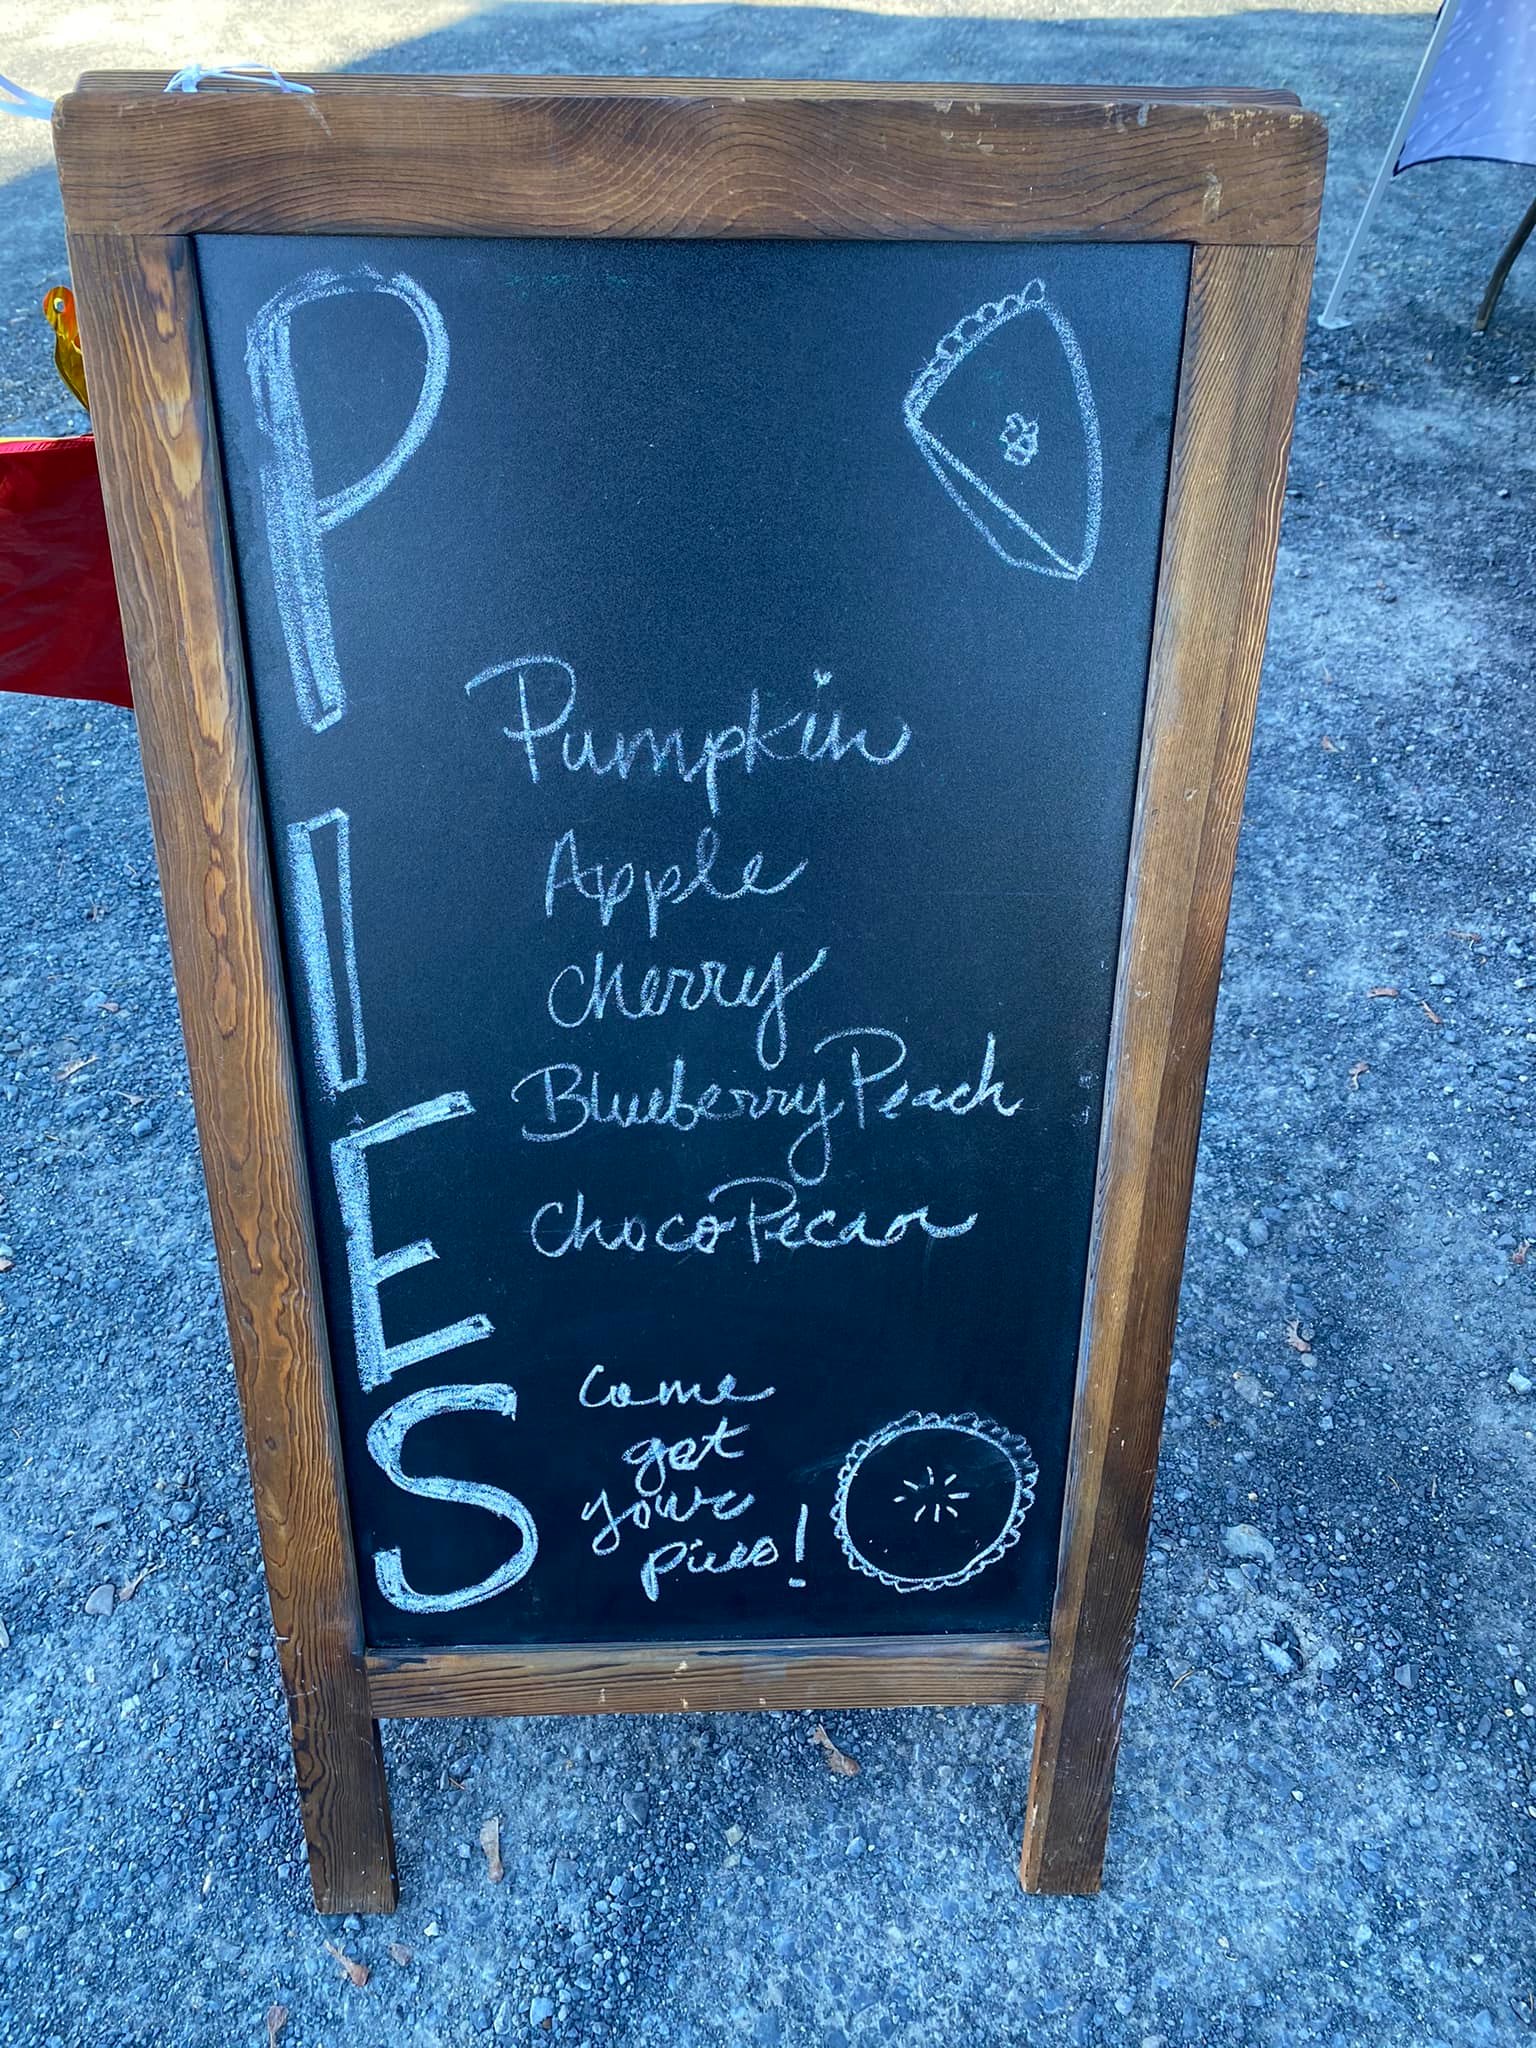 PIES
Pumpkin
Apple
Cherry
Blueberry Peach
Choco Pecan
Come
get
your
pies!